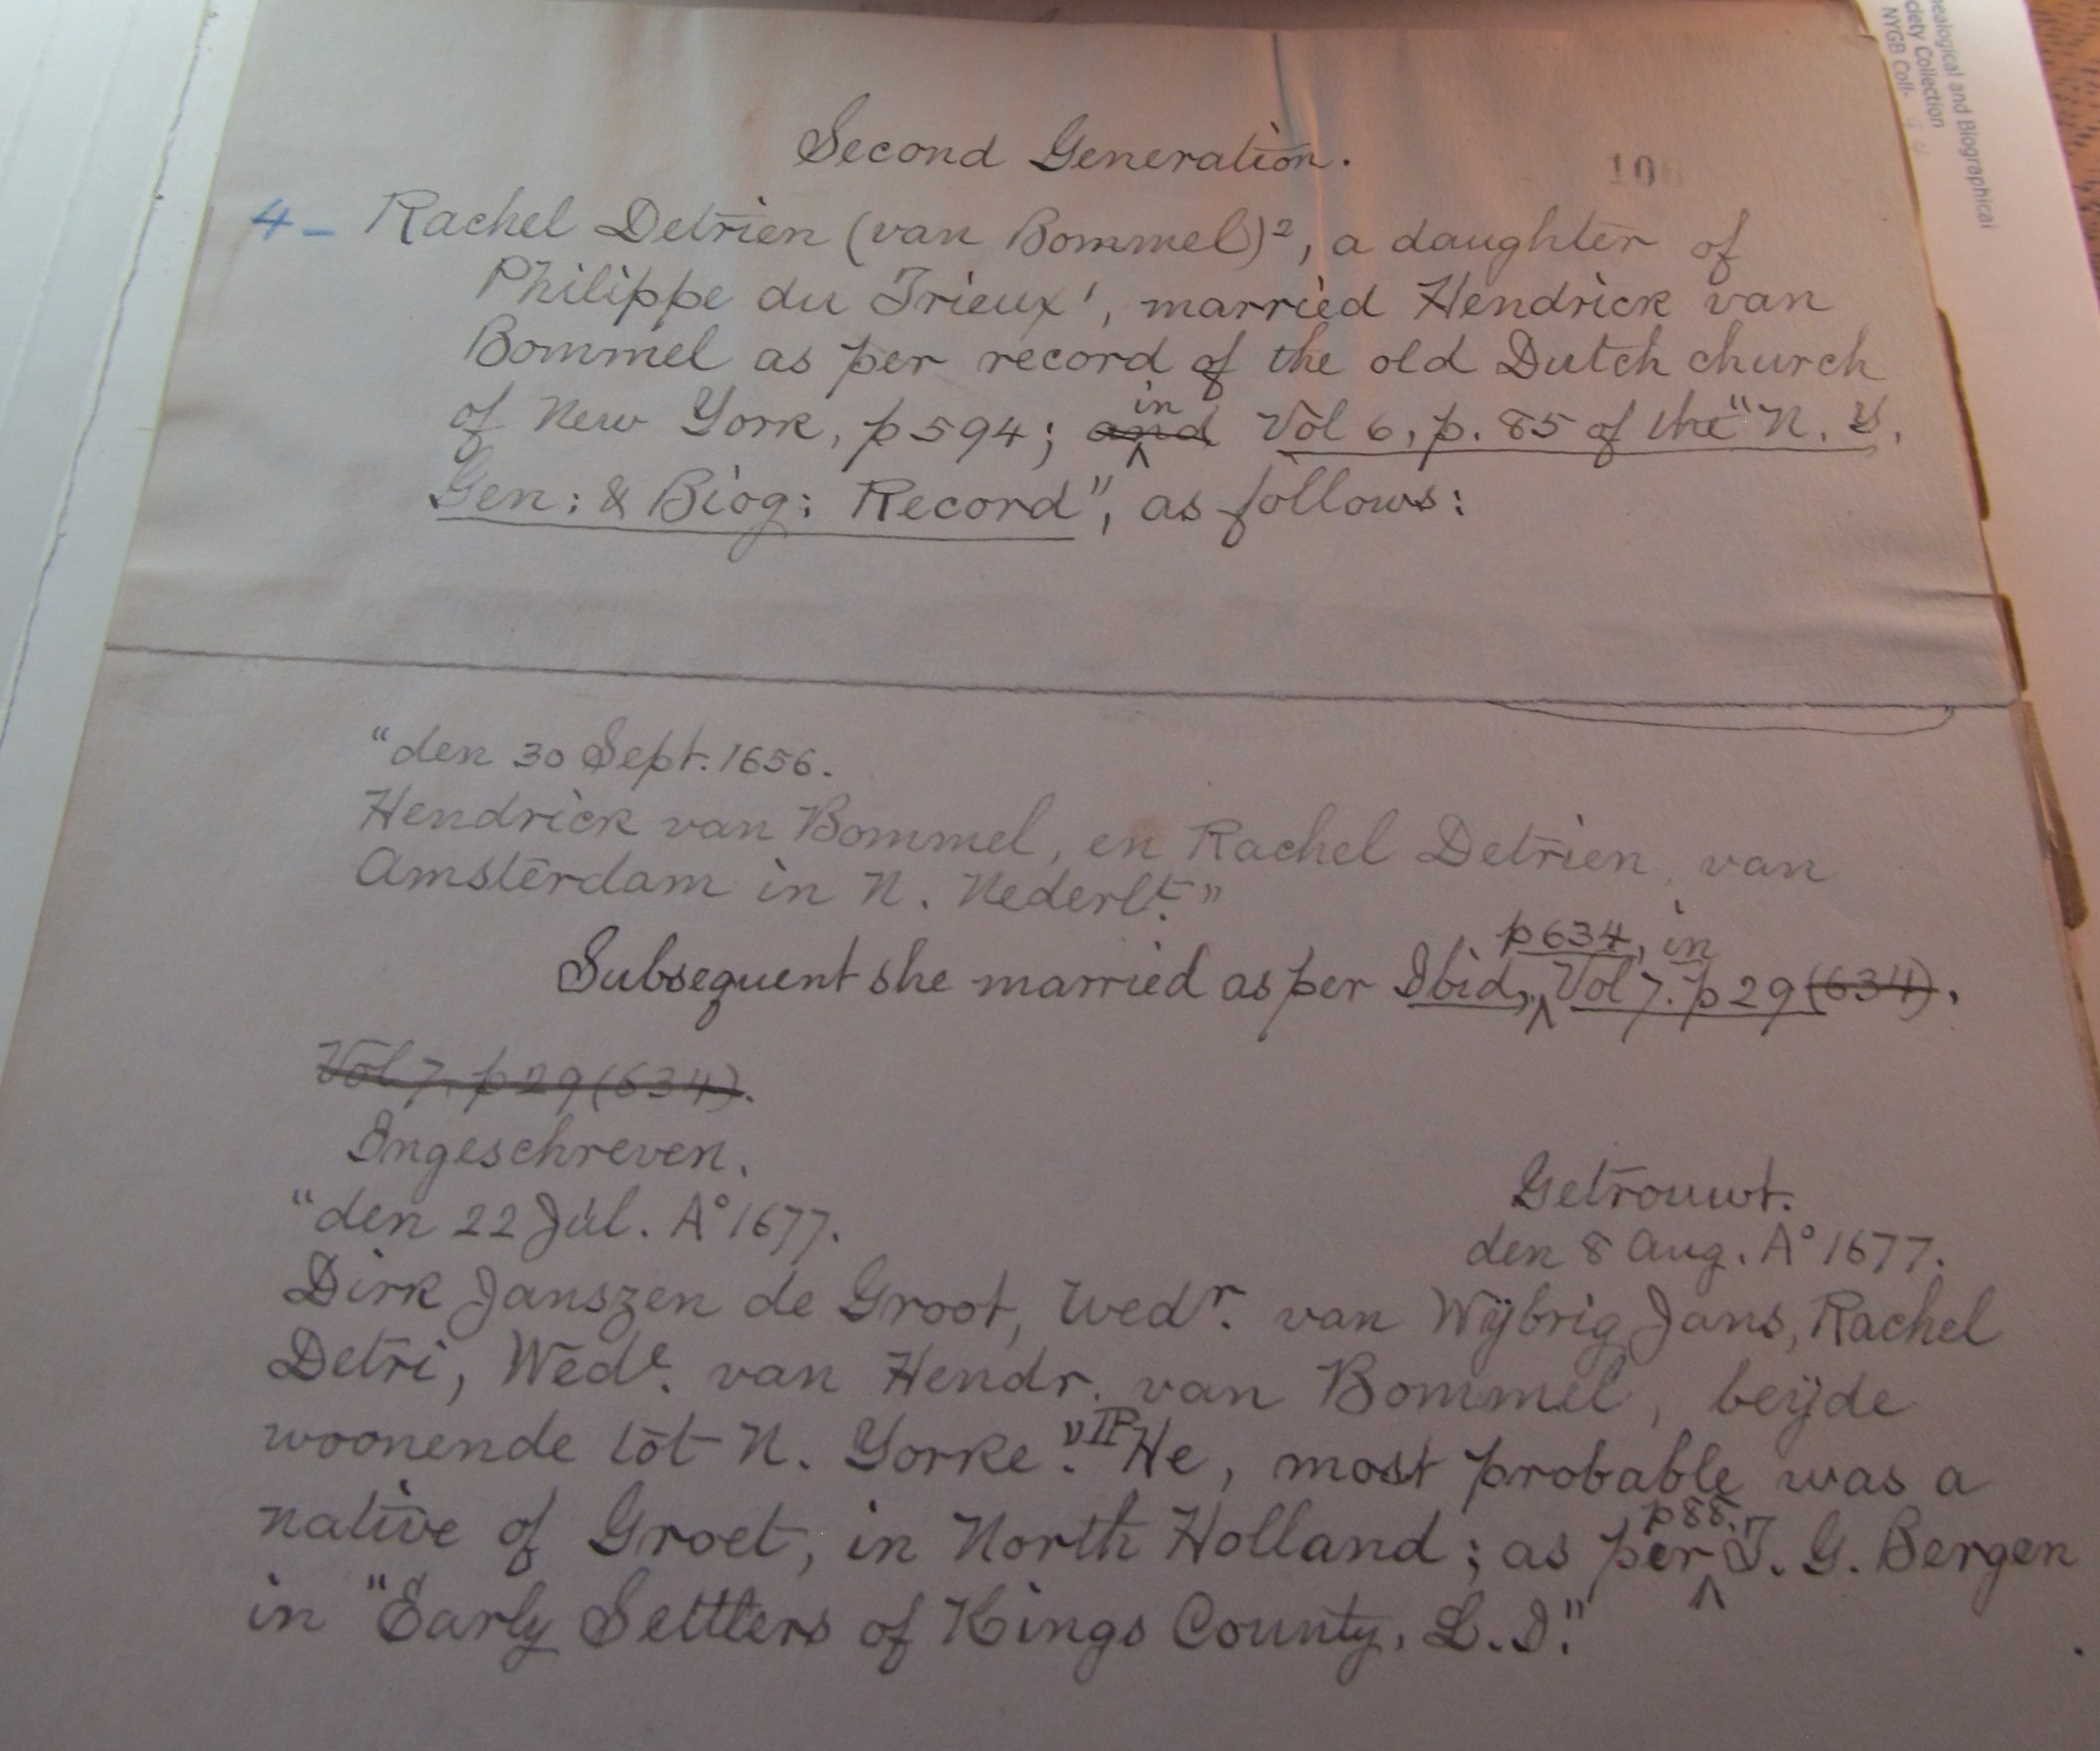 Second Generation.
10
4- Rachel Detrien (van Bommel)², a daughter of
Philippe du Trieux¹, married Hendrick van
Bommel as per record of the old Dutch church
of New York, p594; and in Vol 6, p. 85 of the "N. Y.
Gen: & Biog: Record", as follows:
"den 30 Sept. 1656.
Hendrick van Bommel, en Rachel Detrien, van
Amsterdam in N. Nederlt."
p634, in
Subsequent she married as per Ibid, Vol 7. p29 (634).
Vol 7. p29 (634).
Ingeschreven.
Getrouwt.
"den 22 Jul. A° 1677.
den 8 Aug. A° 1677.
Dirk Janszen de Groot, Wedr. van Wÿbrig Jans, Rachel
Detri, Wede. van Hendr. van Bommel, beÿde
woonende tot N. Yorke." He, most probable was a
native of Groet, in North Holland; as per p88. T. G. Bergen
in "Early Settlers of Kings County, L. I."
nealogical and Biographical
ciety Collection
NYGB Coll-